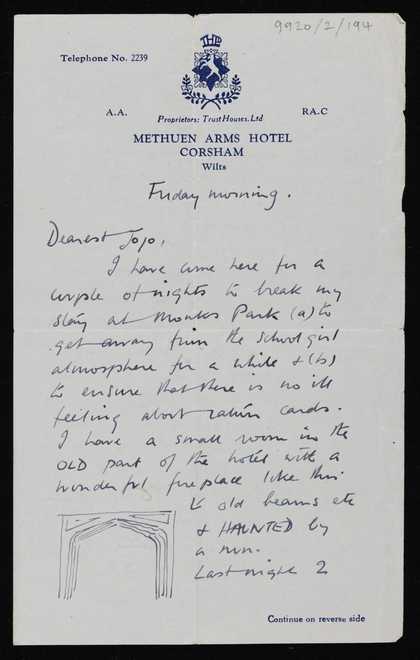 9920/2/194
THL
Telephone No. 2239
A.A.
R.A.C
Proprietors: Trust Houses. Ltd
METHUEN ARMS HOTEL
CORSHAM
Wilts
Friday morning.
Dearest Jojo,
I have come here for a
couple of nights to break my
stay at Monks Park (a) to
get away from the school girl
atmosphere for a while & (b)
to ensure that there is no ill
feeling about ration cards.
I have a small room in the
OLD part of the hotel with a
wonderful fireplace like this
& old beams etc
& HAUNTED by
a nun.
Last night 2
Continue on reverse side